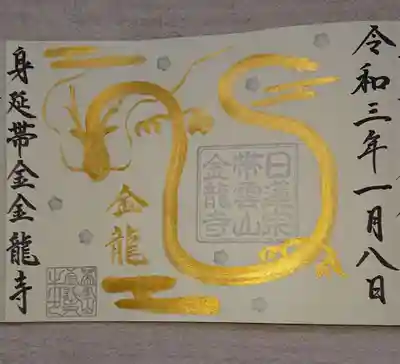 令和三年一月八日
日蓮宗
帯雲山
金龍寺
金龍
身延帯金金龍寺